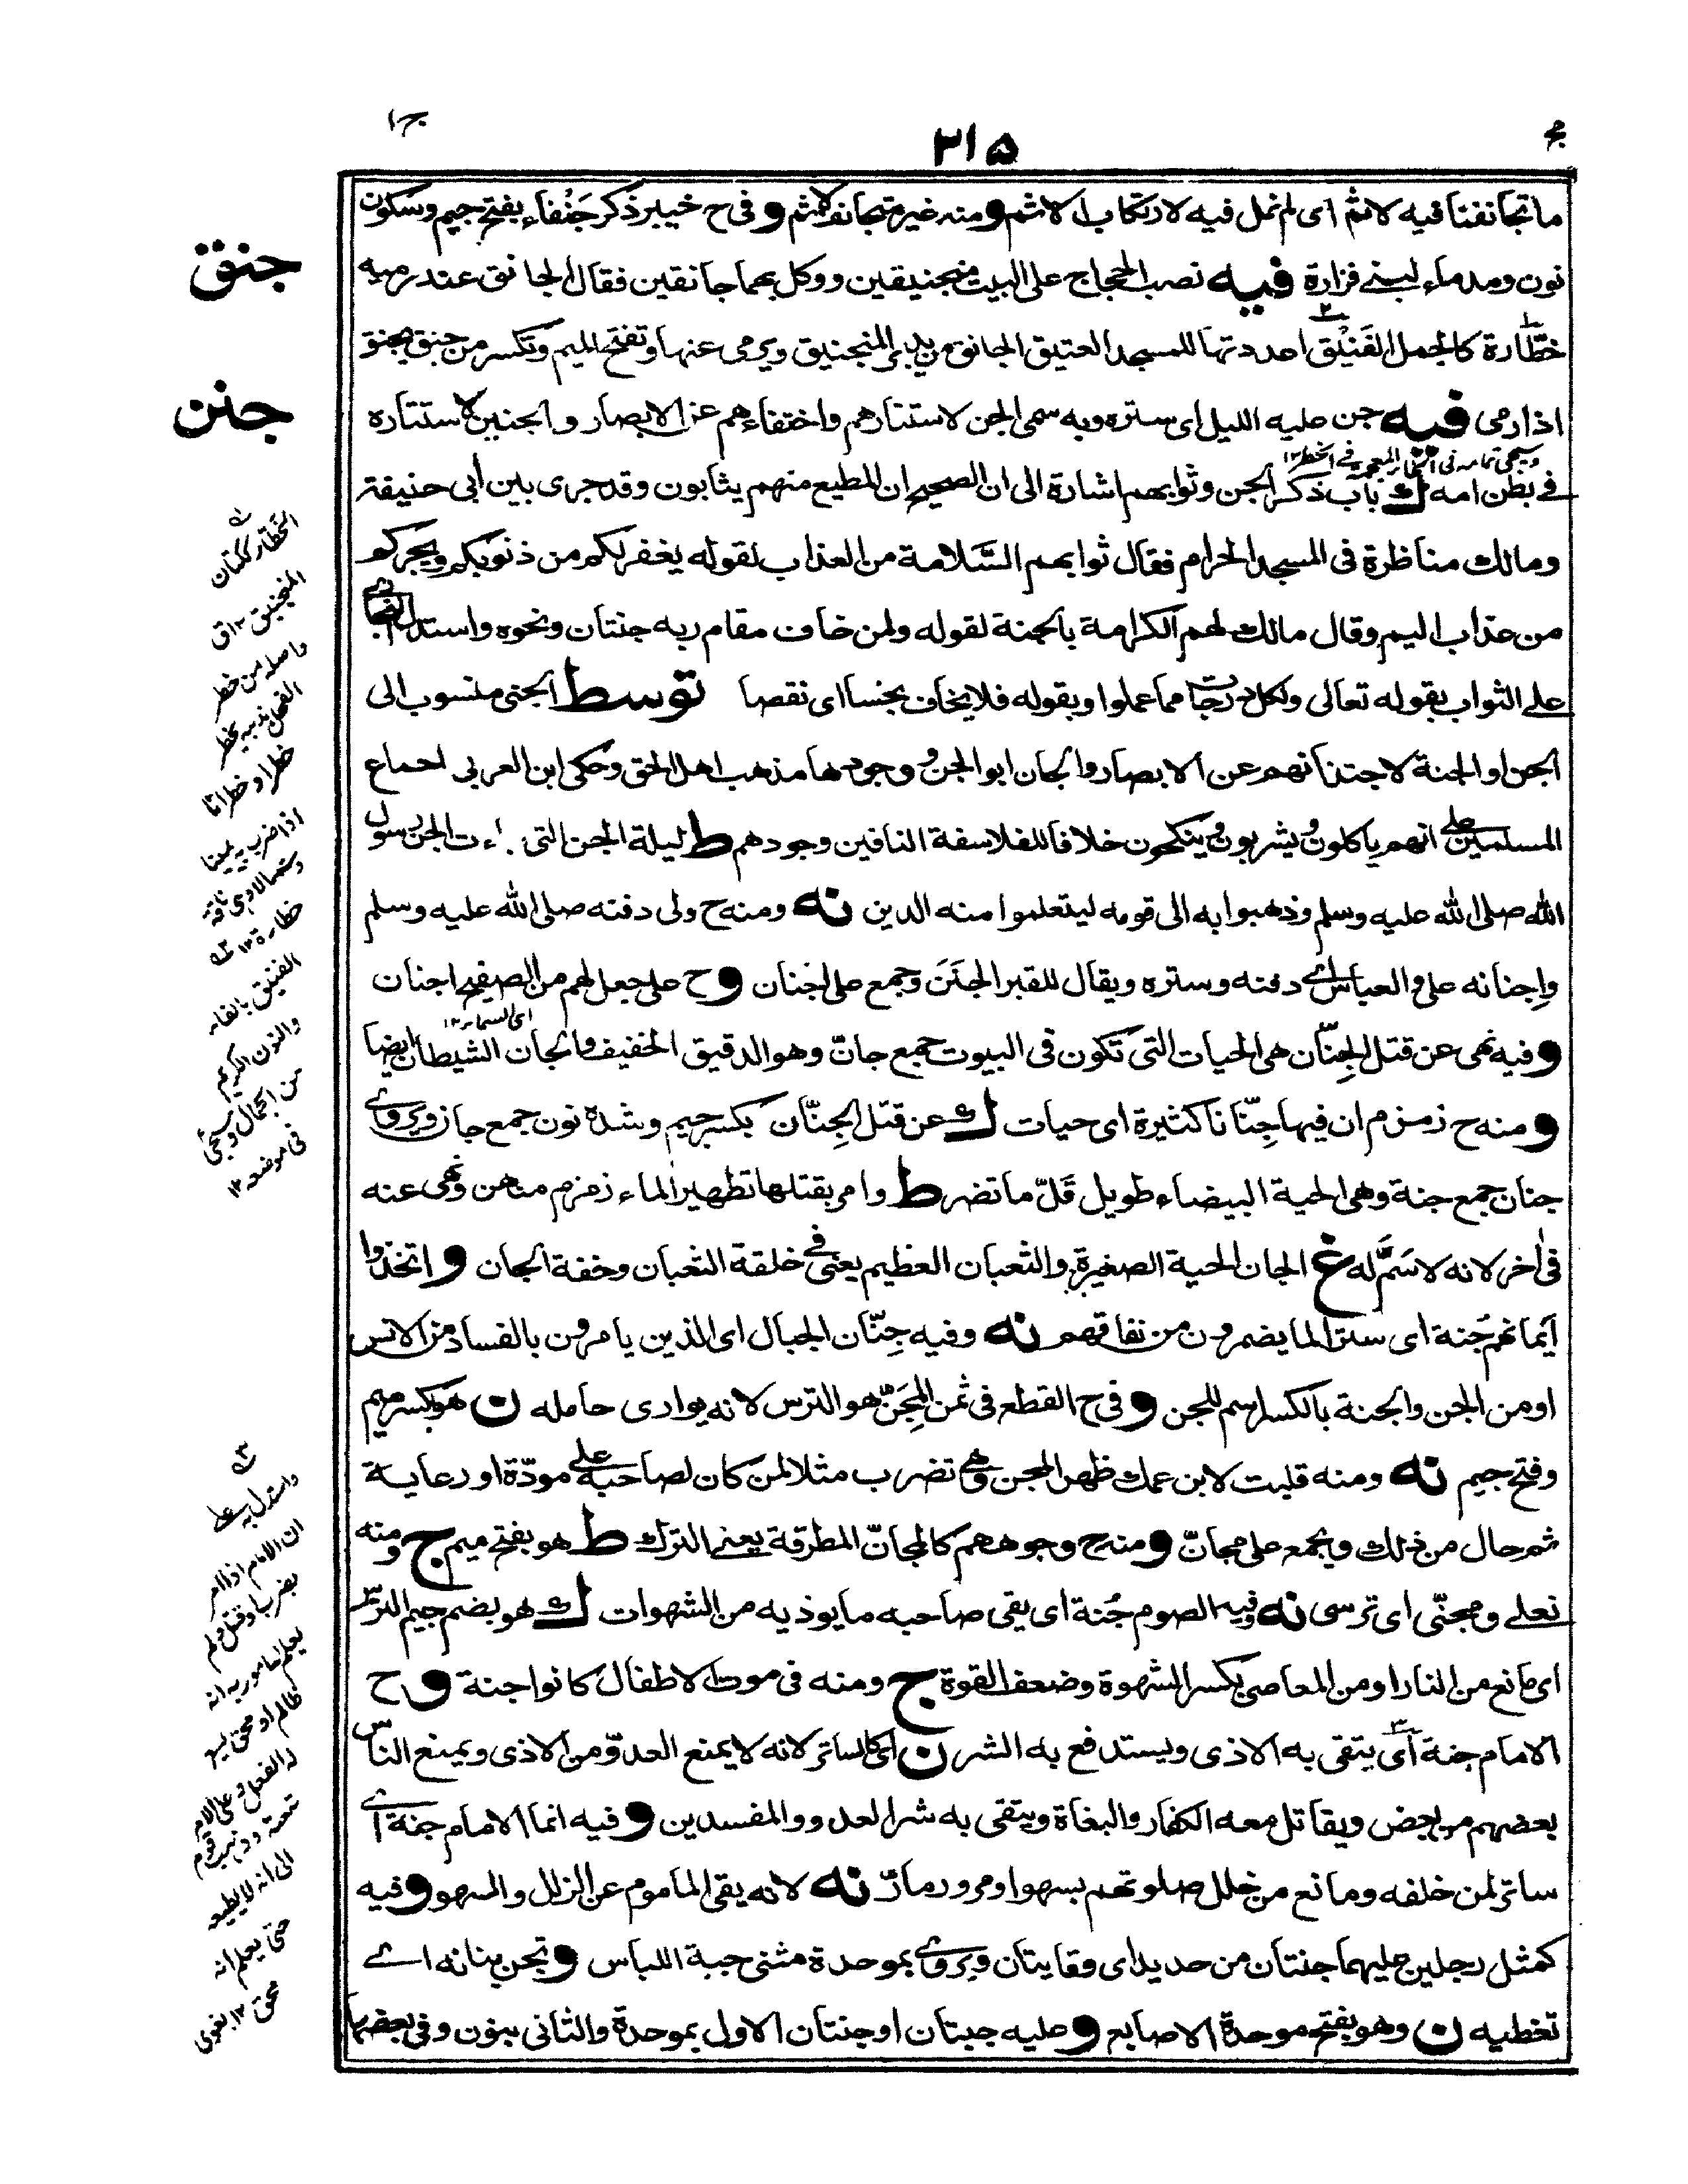 مج
٢١٥
ج١
ما تجانفنا فيه لاثم اى لم نمل فيه لارتكاب الاثم و منه غير متجانف لاثم و فى ح خيبر ذكر جَنْفاء بفتح جيم وسكون
نون ومد ماء لبنى فزارة فيه نصب الحجاج على البيت منجنيقين ووكل بهما جانقين فقال الجانق عند رميه
خطّارة كالجمل الفَنيْق اعددتها للمسجد العتيق الجانق من يدبر المنجنيق ويرمى عنها وتفتح الميم وتكسر من جنق يجنق
اذا رمى فيه جن عليه الليل اى ستره وبه سمى الجن لاستتارهم واختفاءهم عن الابصار والجنين لاستتاره
وسيجئ تمامه فى الخطر ١٢
فى بطن امه ك باب ذكر الجن وثوابهم اشارة الى ان الصحيح ان المطيع منهم يثابون وقد جرى بين أبى حنيفة
ومالك مناظرة فى المسجد الحرام فقال ثوابهم السَّلامة من العذاب لقوله يغفر لكم من ذنوبكم ويجركم
من عذاب اليم وقال مالك لهم الكرامة بالجنة لقوله ولمن خاف مقام ربه جنتان ونحوه واستدل البخارى
على الثواب بقوله تعالى ولكل درجات مما عملوا وبقوله فلا يخاف بخسا اى نقصا توسط الجنى منسوب الى
الجن او الجنة لاجتنانهم عن الابصار والجان ابو الجن و وجودها مذهب اهل الحق وحكى ابن العربى اجماع
المسلمين على انهم ياكلون ويشربون وينكحون خلافا للفلاسفة النافين وجودهم ط ليلة الجن التى جاءت الجن رسول
الله صلى الله عليه وسلم وذهبوا به الى قومه ليتعلموا منه الدين نه ومنه ح ولى دفنه صلى الله عليه وسلم
وإجنانه على والعباس اى دفنه وستره ويقال للقبر الجَنَن وجمع على اجنان و ح على جعل لهم من الصفيح اجنان
اى السماء ١٢
و فيه نهى عن قتل الجِنّان هى الحيات التى تكون فى البيوت جمع جانّ وهو الدقيق الخفيف والجان الشيطان ايضا
و منه ح زمزم ان فيها جِنّانا كثيرة اى حيات ك عن قتل الجِنّان بكسر جيم وشدة نون جمع جان ويروى
جنان جمع جنة وهى الحية البيضاء طويل قَلّ ما تضر ط وامر بقتلها تطهيرا لماء زمزم منهن ونهى عنه
فى اٰخر لانه لا سَمَّ له غ الجان الحية الصغيرة والثعبان العظيم يعنى فى خلقة الثعبان وخفة الجان و اتخذوا
أيمانهم جُنة اى سترا لما يضمرون من نفاقهم نه وفيه جِنّان الجبال اى الذين يامرون بالفساد من الانس
او من الجن والجنة بالكسر اسم للجن و فى ح القطع فى ثمن المِجَنّ هو الترس لانه يوارى حامله ن هو بكسر ميم
وفتح جيم نه ومنه قلبت لابن عمك ظهر المجن وهى تضرب مثلا لمن كان لصاحبه على مودّة او رعاية
ثم حال من ذلك ويجمع على مجانّ و منه ح وجوههم كالمجانّ المطرقة يعنى الترك ط هو بفتح ميم ج ومنه
نعلى ومجنّى اى ترسى نه وفيه الصوم جُنة اى يقى صاحبه ما يوذيه من الشهوات ك هو بضم جيم الترس
اى مانع من النار او من المعاصى بكسر الشهوة وضعف القوة ج ومنه فى موت الاطفال كانوا جنة و ح
الامام جنة اى يتقى به الاذى ويستدفع به الشر ن اى كالساتر لانه لا يمنع العدوّ من الاذى ويمنع الناس
بعضهم من بعض ويقاتل معه الكفار والبغاة ويتقى به شر العدو والمفسدين و فيه انما الامام جنة اى
ساتر لمن خلفه ومانع من خلل صلوتهم بسهو او مرور مارّ نه لانه يقى الماموم عن الزلل والسهو و فيه
كمثل رجلين عليهما جنتان من حديد اى وقايتان ويروى بموحدة مثنى جبة اللباس و تجن بنانه اى
تغطيه ن وهو بفتح موحدة الاصابع و عليه جبتان او جنتان الاول بموحدة والثانى بنون وفى بعضها
جنق
جنن
الخطار ككتان
المنجنيق ١٢ ق
واصله من خطر
الفحل بذنبه يخطر
خطرا وخطرانا
اذا ضرب به يمينا
وشمالا وهى ناقة
خطارة ١٢
الفنيق بالفاء
والنون الكريم
من الجمال وسيجئ
فى موضعه ١٢
٣
واستدل به على
ان الامام اذا امر
بضرب او قتل ولم
يعلم المامور به انه
ظالم او محق يسع
له الفعل وعلى الامر
تبعته وذهب قوم
الى انه لا يطيعه
حتى يعلم انه
محق ١٢ بغوى